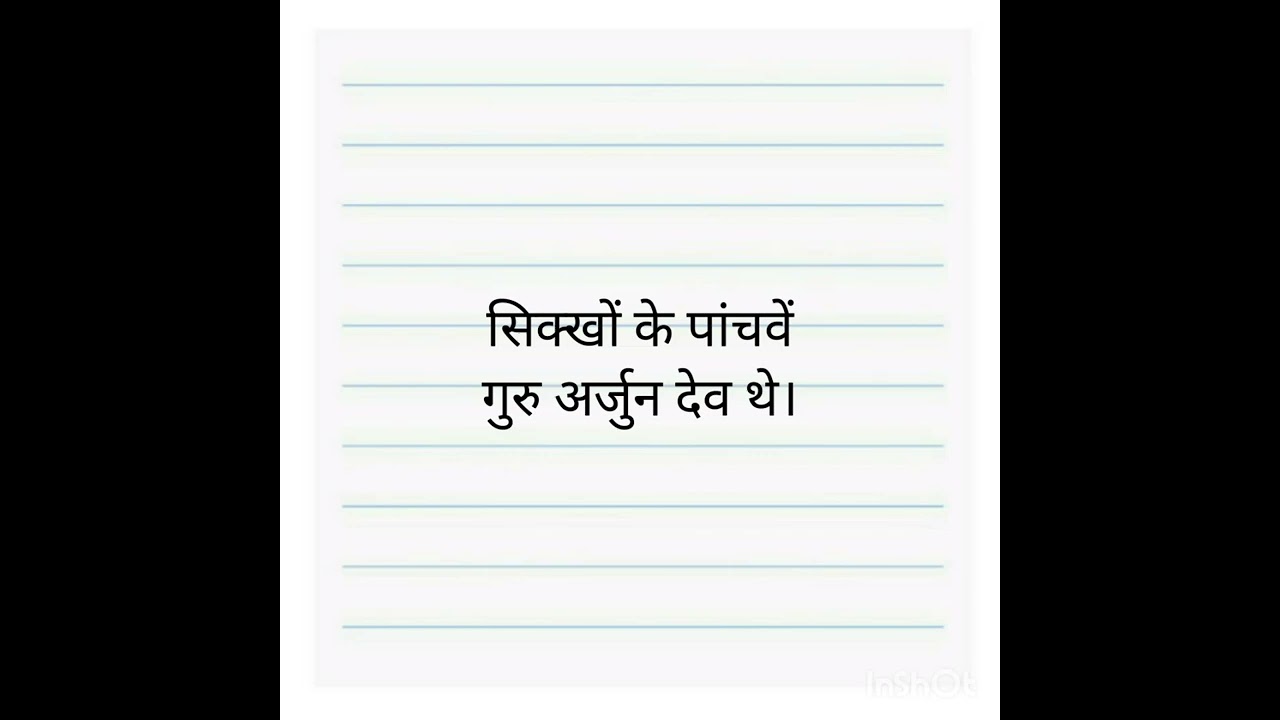 सिक्खों के पांचवें
गुरु अर्जुन देव थे।
InShOt